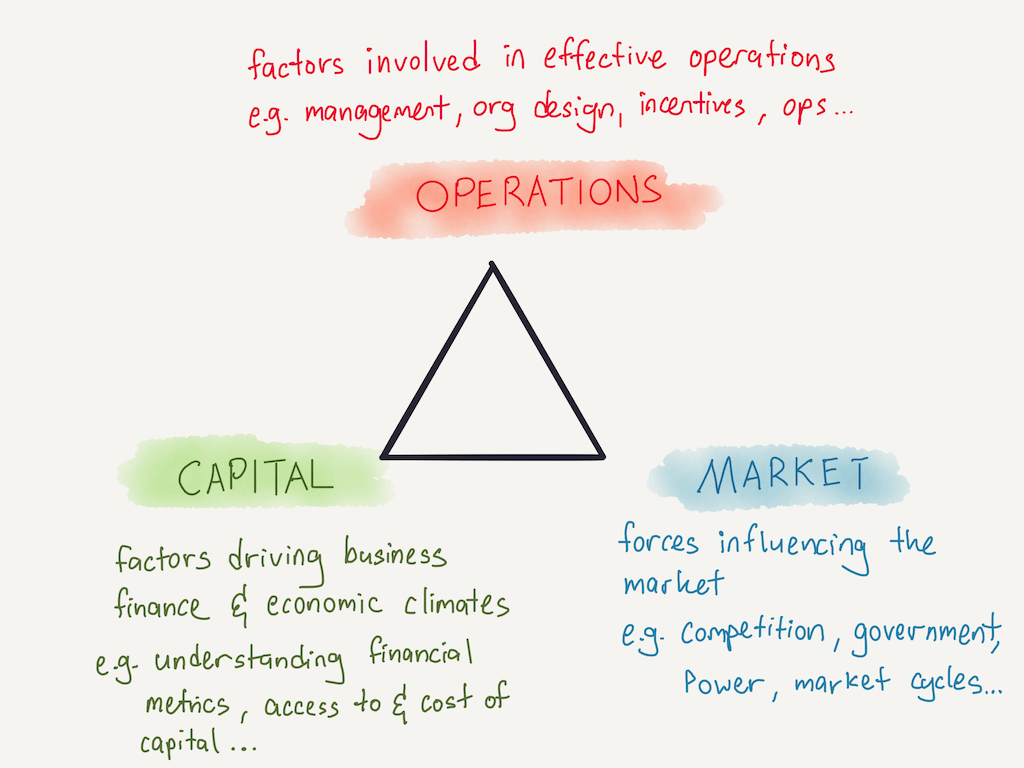 factors involved in effective operations
e.g. management, org design, incentives, ops...
OPERATIONS
CAPITAL
factors driving business
finance & economic climates
e.g. understanding financial
metrics, access to & cost of
capital...
MARKET
forces influencing the
market
e.g. competition, government,
Power, market cycles...